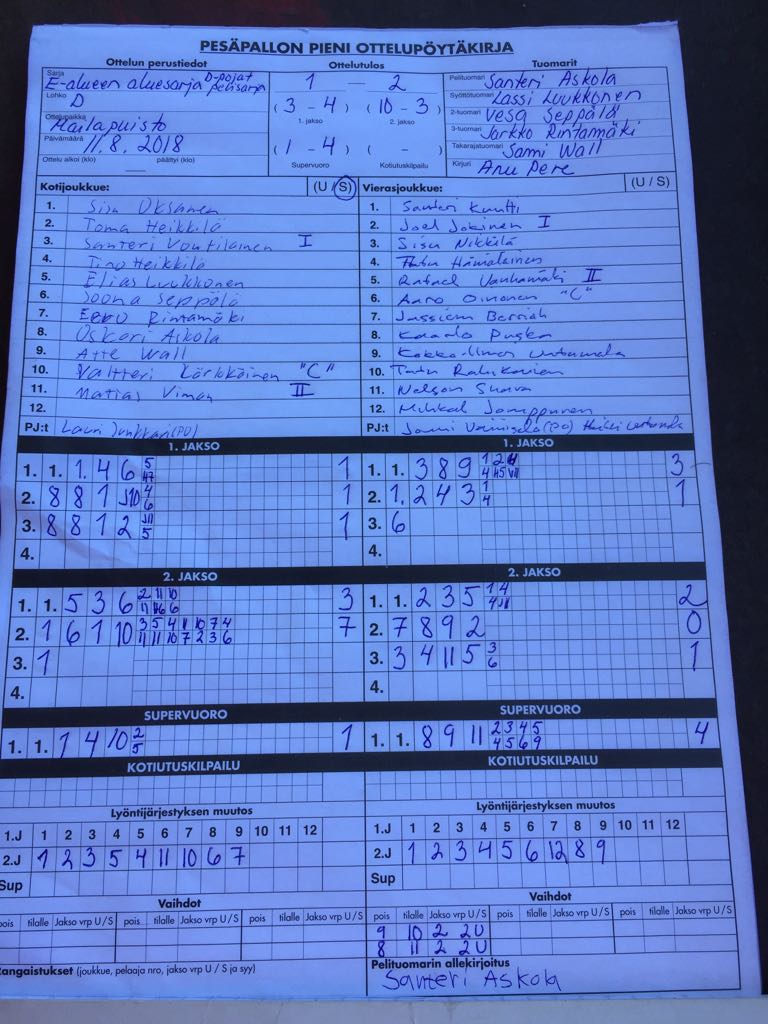 PESÄPALLON PIENI OTTELUPÖYTÄKIRJA
Ottelun perustiedot
Sarja
E-alueen aluesarja D-pojat pelisarja
Lohko
D
Ottelupaikka
Hailapuisto
Päivämäärä
11.8.2018
Ottelu alkoi (klo) päättyi (klo)
Ottelutulos
1 — 2
(3 - 4) (10 - 3)
1. jakso 2. jakso
(1 - 4) ( - )
Supervuoro Kotiutuskilpailu
Tuomarit
Pelituomari Santeri Askola
Syöttötuomari Lassi Luukkonen
2-tuomari Vesa Seppälä
3-tuomari Jarkko Rintamäki
Takarajatuomari Sami Wall
Kirjuri Anu Pere
Kotijoukkue: (U / S)
1. Sisu Oksanen
2. Toma Heikkilä
3. Santeri Voutilainen I
4. Tino Heikkilä
5. Elias Luukkonen
6. Joona Seppälä
7. Eero Rintamäki
8. Oskari Askola
9. Atte Wall
10. Valtteri Kärkkäinen "C"
11. Matias Viman II
12.
PJ:t Lauri (PJ)
Vierasjoukkue: (U / S)
1. Santeri Kuutti
2. Joel Jokinen I
3. Sisu Nikkilä
4. Hämäläinen
5. Rafael Vanhamäki II
6. Aaro Oinonen "C"
7. Berriah
8. Kaarlo
9.
10.
11. Nelson
12. Mihkal Jomppanen
PJ:t Jami
1. JAKSO
1. 1. 1. 4 6 5 47 1
2. 8 8 1 10 4 6 1
3. 8 8 1 2 11 5 1
4.
1. JAKSO
1. 1. 3 8 9 3
2. 1. 2 4 3 1 4 1
3. 6
4.
2. JAKSO
1. 1. 5 3 6 2 11 10 3
2. 1 6 1 10 3 5 4 1 10 7 4 11 11 10 7 2 3 6 7
3. 1
4.
2. JAKSO
1. 1. 2 3 5 1 4 4 11 2
2. 7 8 9 2 0
3. 3 4 11 5 3 6 1
4.
SUPERVUORO
1. 1. 1 4 10 2 5 1
SUPERVUORO
1. 1. 8 9 11 2 3 4 5 4 5 6 9 4
KOTIUTUSKILPAILU
KOTIUTUSKILPAILU
Lyöntijärjestyksen muutos
1.J 1 2 3 4 5 6 7 8 9 10 11 12
2.J 1 2 3 5 4 11 10 6 7
Sup
Lyöntijärjestyksen muutos
1.J 1 2 3 4 5 6 7 8 9 10 11 12
2.J 1 2 3 4 5 6 7 12 8 9
Sup
Vaihdot
pois tilalle Jakso vrp U / S pois tilalle Jakso vrp U / S pois tilalle Jakso vrp U / S
Vaihdot
pois tilalle Jakso vrp U / S pois tilalle Jakso vrp U / S pois tilalle Jakso vrp U / S
9 10 2 2U
8 11 2 2U
Rangaistukset (joukkue, pelaaja nro, jakso vrp U / S ja syy)
Pelituomarin allekirjoitus
Santeri Askola